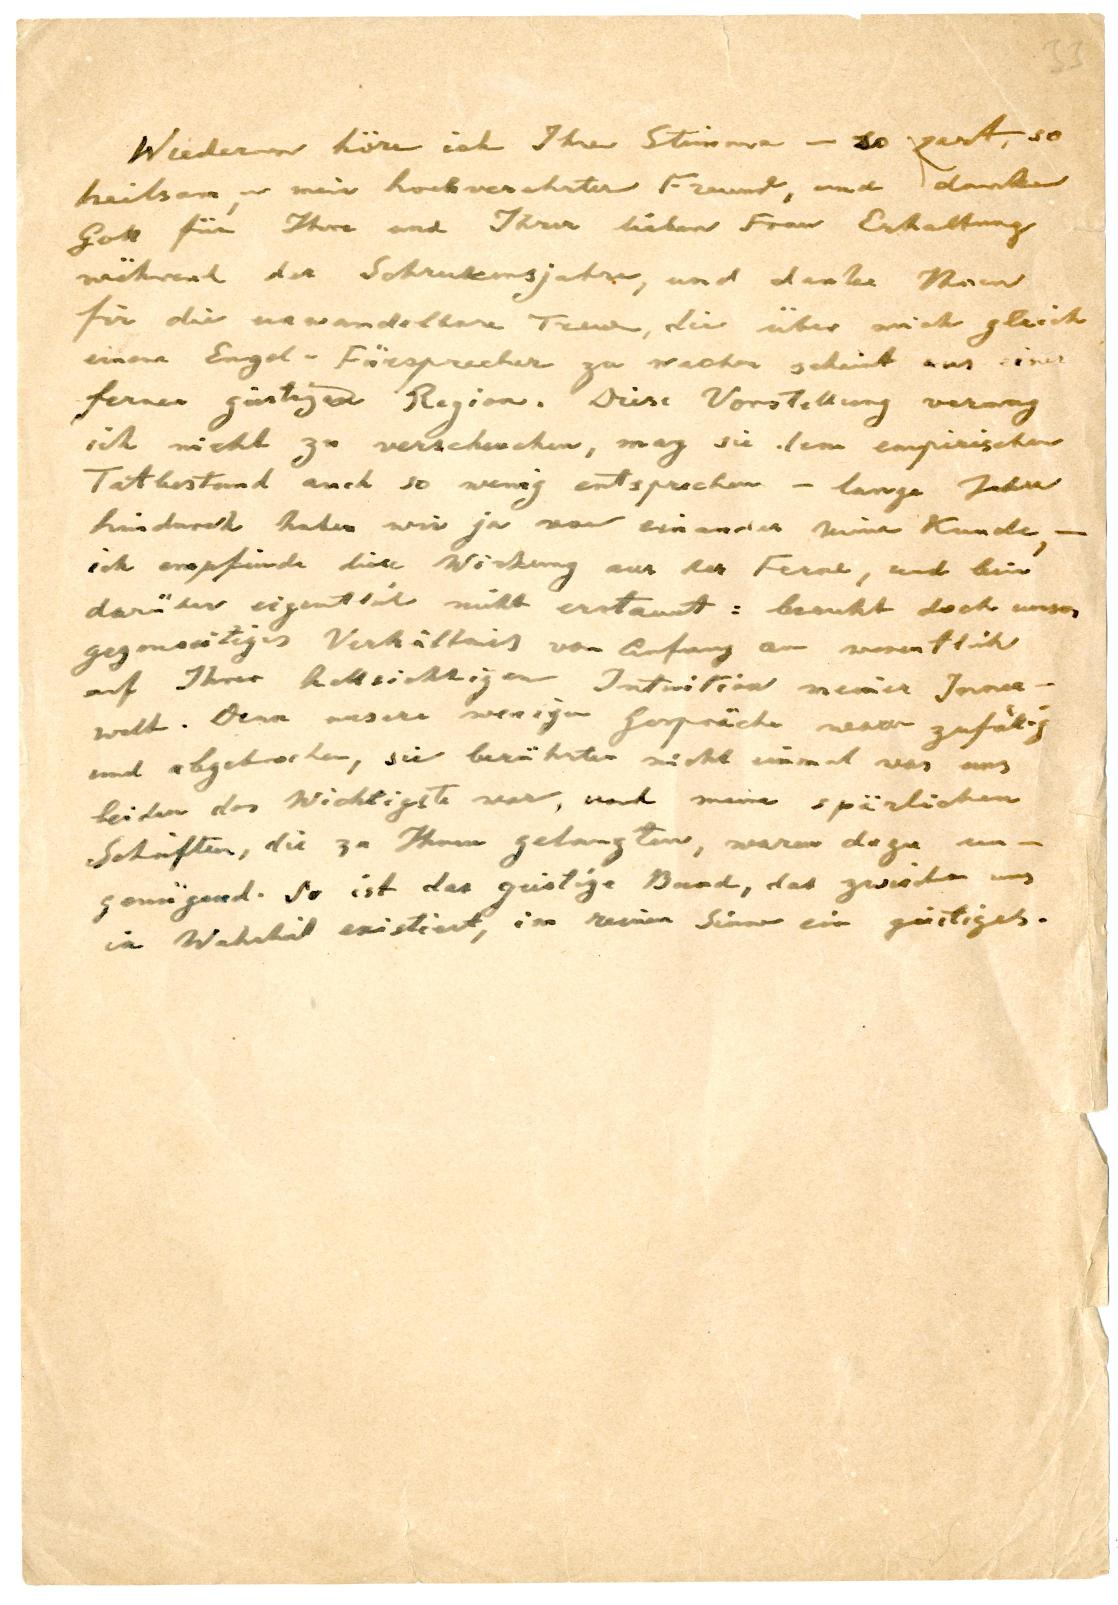 33
Wiederum höre ich Ihre Stimme – so zart, so
heilsam, mein hochverehrter Freund, und danke
Gott für Ihre und Ihrer lieben Frau Erhaltung
während der Schreckensjahre, und danke Ihnen
für die unwandelbare Treue, die über mich gleich
einem Engel-Fürsprecher zu wachen scheint aus einer
fernen geistigen Region. Diese Vorstellung vermag
ich nicht zu verscheuchen, mag sie dem empirischen
Tatbestand auch so wenig entsprechen – lange Jahre
hindurch haben wir ja von einander keine Kunde, –
ich empfinde diese Wirkung aus der Ferne, und bin
darüber eigentlich nicht erstaunt: beruht doch unser
gegenseitiges Verhältnis von Anfang an wesentlich
auf Ihrer hellsichtigen Intuition meiner Innen-
welt. Denn unsere wenigen Gespräche waren zufällig
und abgebrochen, sie berührten nicht einmal was uns
beiden das Wichtigste war, und meine spärlichen
Schriften, die zu Ihnen gelangten, waren dazu un-
genügend. So ist das geistige Band, das zwischen uns
in Wahrheit existiert, im reinen Sinne ein geistiges.